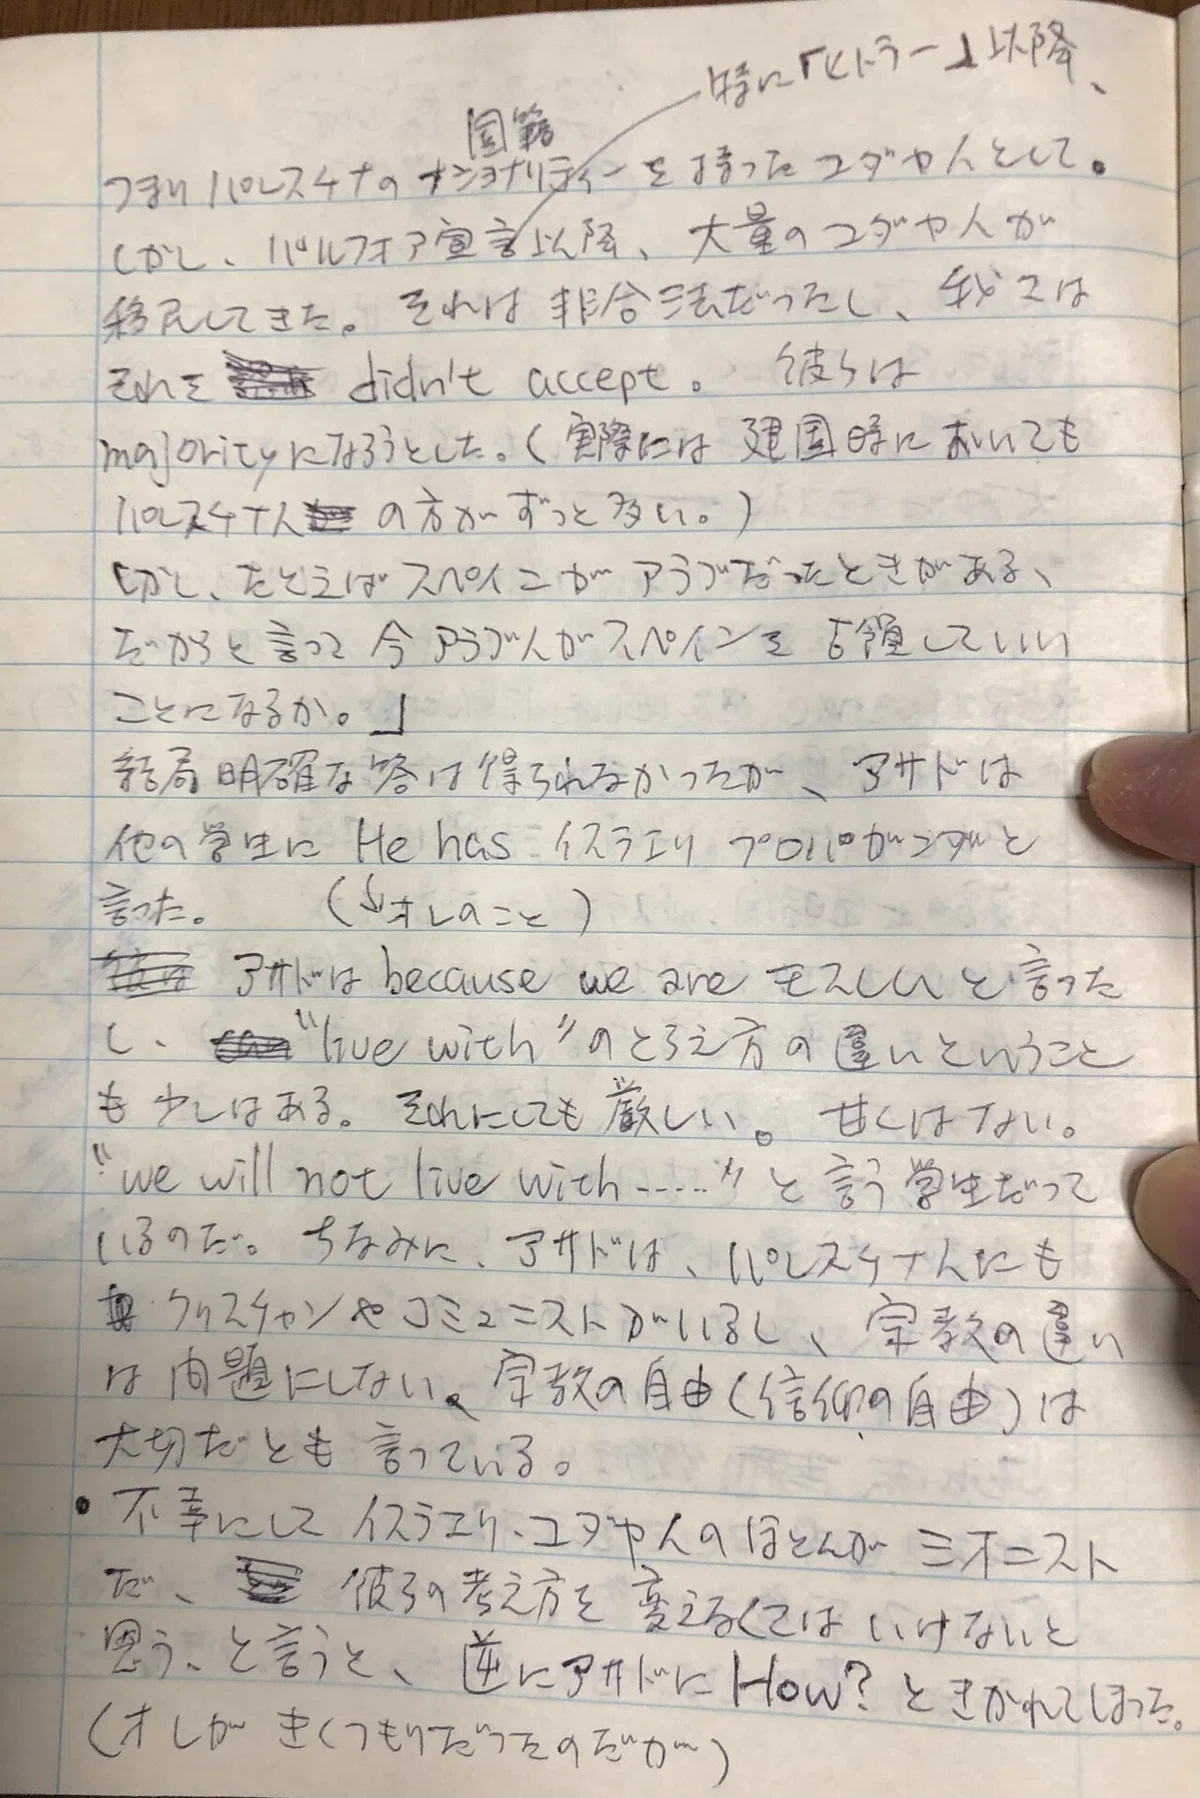 特に「ヒトラー」以降、
国籍
つまりパレスチナのナショナリティーを持ったユダヤ人として。
しかし、バルフォア宣言以降、大量のユダヤ人が
移民してきた。それは非合法だったし、我々は
それを didn't accept。 彼らは
majorityになろうとした。(実際には建国時においても
パレスチナ人の方がずっと多い。)
しかし、たとえばスペインがアラブだったときがある、
だからと言って今アラブ人がスペインを占領していい
ことになるか。」
結局明確な答は得られなかったが、アサドは
他の学生に He has イスラエリ プロパガンダと
言った。 (↓オレのこと)
アサドは because we are モスレムと言った
し、“live with”のとらえ方の違いということ
も少しはある。それにしても厳しい。甘くはない。
“we will not live with-----”と言う学生だって
いるのだ。ちなみに、アサドは、パレスチナ人にも
クリスチャンやコミュニストがいるし、宗教の違い
は問題にしない。宗教の自由(信仰の自由)は
大切だとも言っている。
・不幸にしてイスラエリ・ユダヤ人のほとんがシオニスト
だ、彼らの考え方を変えなくてはいけないと
思う、と言うと、逆にアサドにHow?ときかれてしまった。
(オレがきくつもりだったのだが)